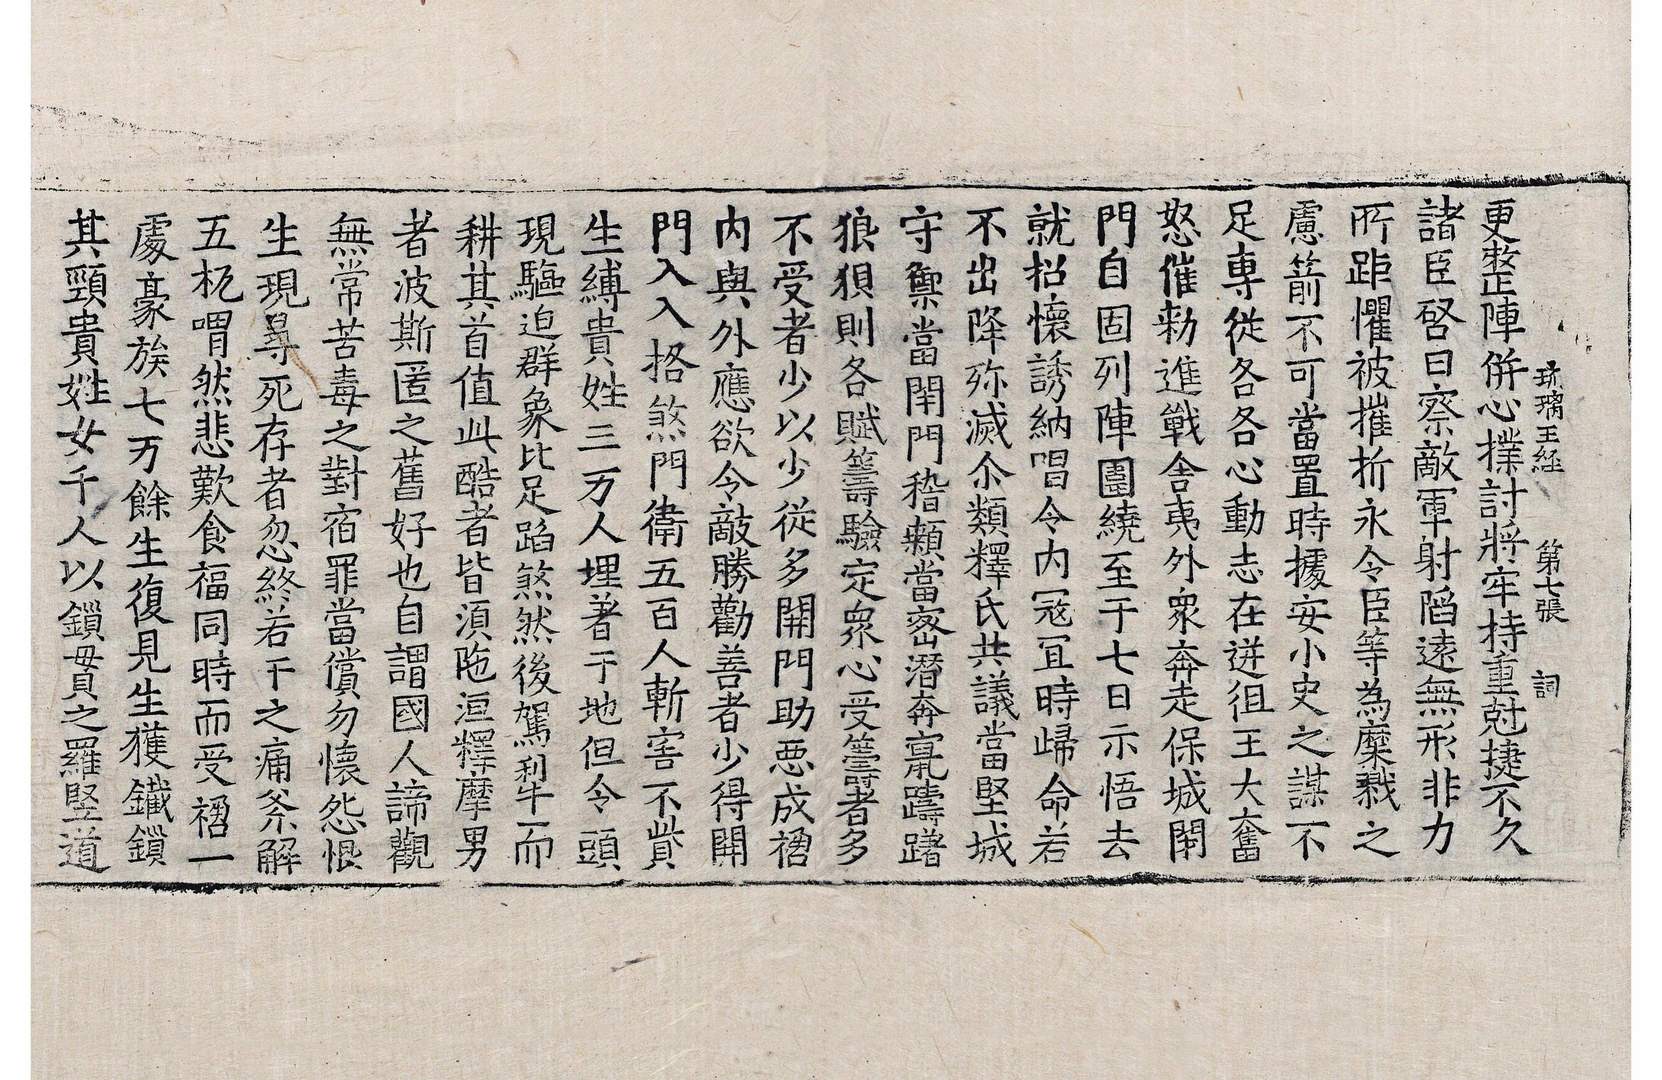 琉璃王経 第七張 詞
更整正陣併心撲討將牢持重尅捷不久
諸臣啓曰察敵軍射陷遠無形非力
所距懼被摧折永令臣等為糜戮之
慮箭不可當置時據安小史之謀不
足專從各各心動志在迸徂王大奮
怒催勑進戰舍夷外衆奔走保城閇
門自固列陣圍繞至于七日示悟去
就招懷誘納唱令内寇冝時歸命若
不出降殄滅尒類釋氏共議當堅城
守禦當開門稽顙當密潛奔竄躊躇
狼狽則各賦籌驗定衆心受籌者多
不受者少以少從多開門助惡成禍
内與外應欲令敵勝勸善者少得開
門入入格煞門衛五百人斬害不貲
生縛貴姓三万人埋著于地但令頭
現驅迫群象比足蹈煞然後駕利牛而
耕其首值此酷者皆湏陁洹釋摩男
者波斯匿之舊好也自謂國人諦觀
無常苦毒之對宿罪當償勿懷怨恨
生現尋死存者忽終若干之痛斧解
五杌喟然悲歎食福同時而受禍一
處豪族七万餘生復見生獲鐵鎖
其頸貴姓女千人以鎖毌貫之羅竪道